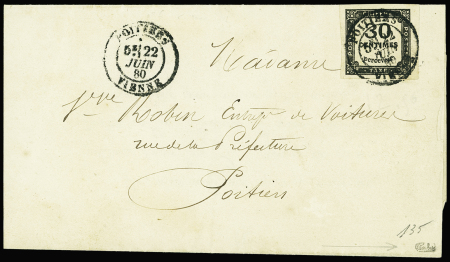 POITIERS
5E 22
JUIN
80
VIENNE
30
CENTIMES
à percevoir
POSTES
TAXE
POITIERS
Madame
Vve Robin Entrep. de Voitures
rue de la Préfecture
Poitiers
135